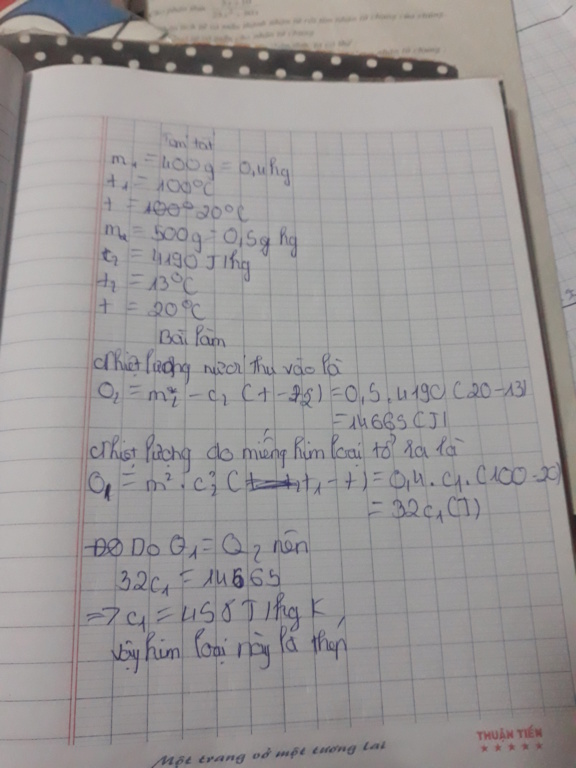 Tóm tắt
m₁ = 400g = 0,4kg
t₁ = 100°C
t = 20°C
m₂ = 500g = 0,5g kg
c₂ = 4190 J/kg
t₂ = 13°C
t = 20°C
Bài làm
Nhiệt lượng nước thu vào là
Q₂ = m₂ - c₂ (t - t₂) = 0,5. 4190 (20-13)
= 14665 (J)
Nhiệt lượng do miếng kim loại tỏ ra là
Q₁ = m². c² (t₁ - t) = 0,4. c₁. (100-20)
= 32c₁ (J)
Do Q₁ = Q₂ nên
32c₁ = 14665
=> c₁ = 458 J/kg K
Vậy kim loại này là thép
THUẬN TIẾN
Một trang vở một tương lai